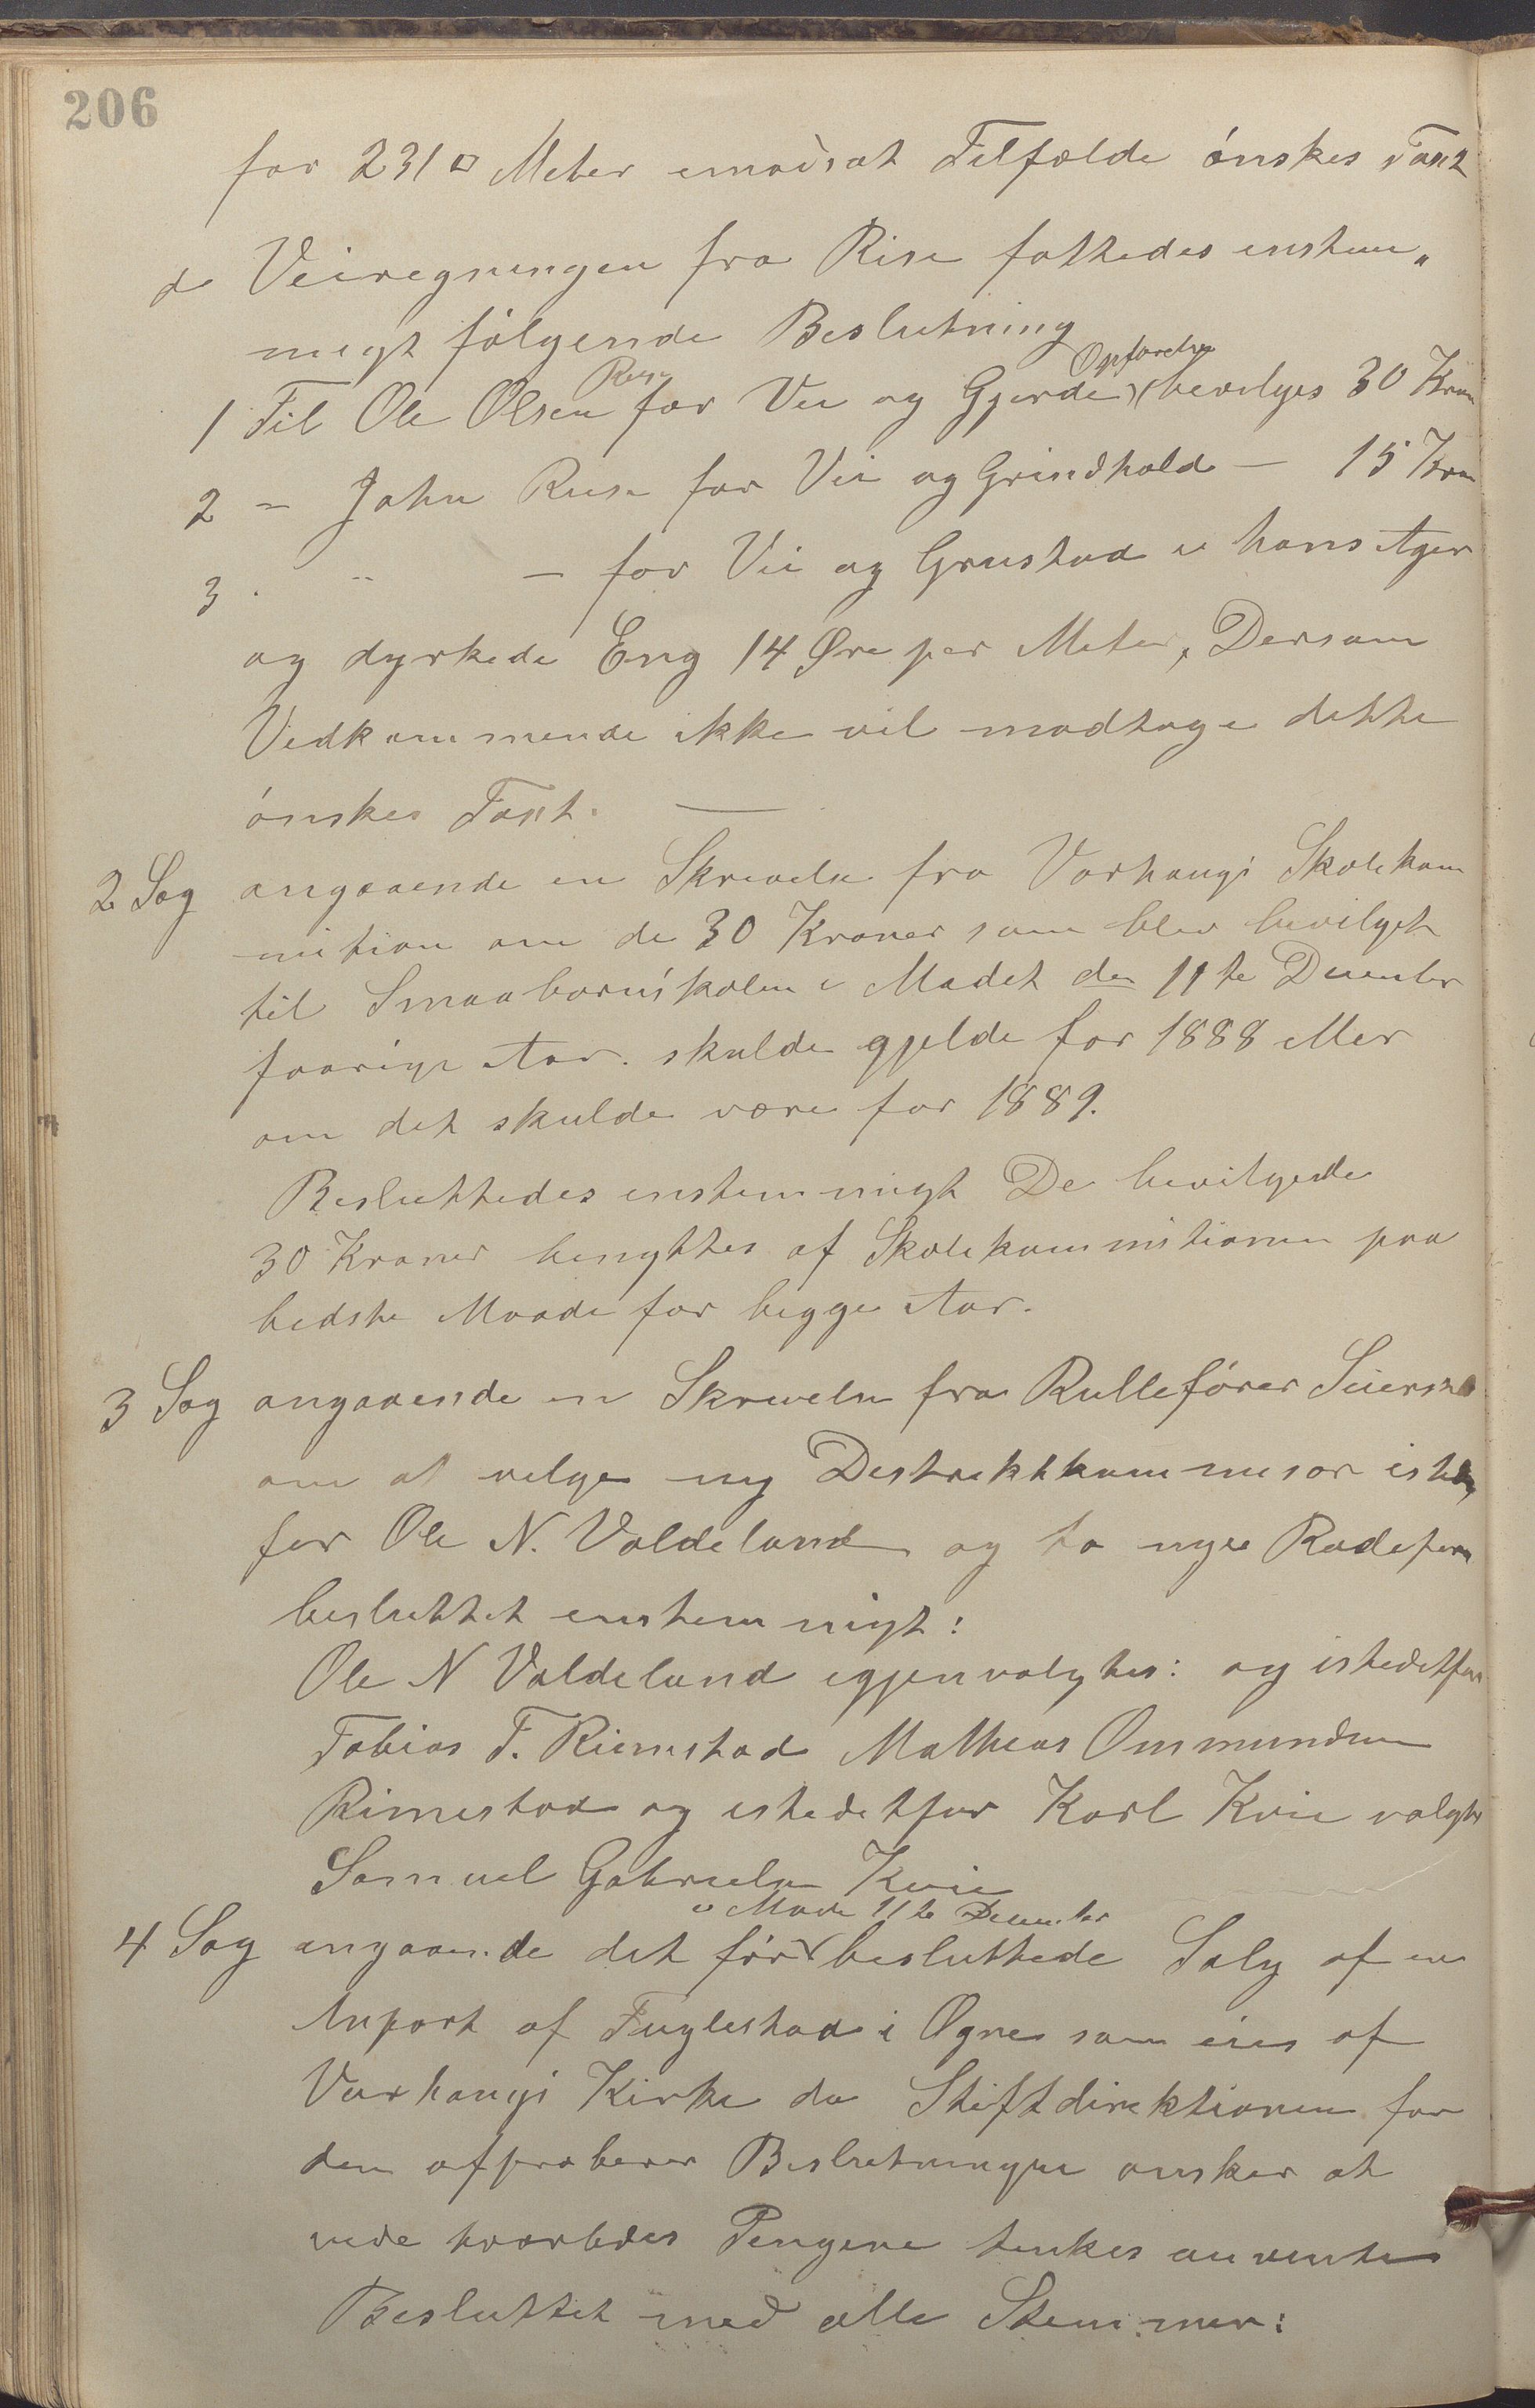 206
for 231 □ Meter emodsat Tilfælde ónskes Taxt
de Veiregningen fra Rise fattedes enstem„
migt fólgende Beslutning
1 Til Ole Olsen Rise for Vei og Gjerde Opførelse bevilges 30 Kron
2 – John Rise for Vei og Grindhold – 15 Kron
3 . „ – for Vei og Grustad i hans Ager
og dyrkede Eng 14 Øre per Meter, Dersom
Vedkommende ikke vil modtage dette
ónskes Taxt. —
2 Sag angaaende en Skrivelse fra Varhaugs Skolekom
mition om de 30 Kroner som blev bevilget
til Smaabornskolen i Mødet den 11te December
forrige Aar. skulde gjelde for 1888 eller
om det skulde være for 1889.
Besluttedes enstemmigt De bevilgede
30 Kroner benyttes af Skolekommitionen paa
bedste Maade for begge Aar.
3 Sag angaaende en Skrivelse fra Rullefórer
om at velge ny Destriktkommisær isted
for Ole N. Valdeland og to nye
besluttet enstemmigt:
Ole N Valdeland igjenvalgtes: og istedetfor
Tobias T. Rimestad Matheas Ommundsen
Rimestad og istedetfor Karl Kvie valgte
Samuel Gabrielsen Kvie
i Møde 11te December
4 Sag angaaende det fór besluttede Salg af en
Anpart af Fuglestad i Ogne som eies af
Varhaugs Kirke da Stiftdirektionen for
den afproberer Beslutningen ønsker at
vide hvorledes Pengene tenkes anvente
Besluttet med alle Stemmer: